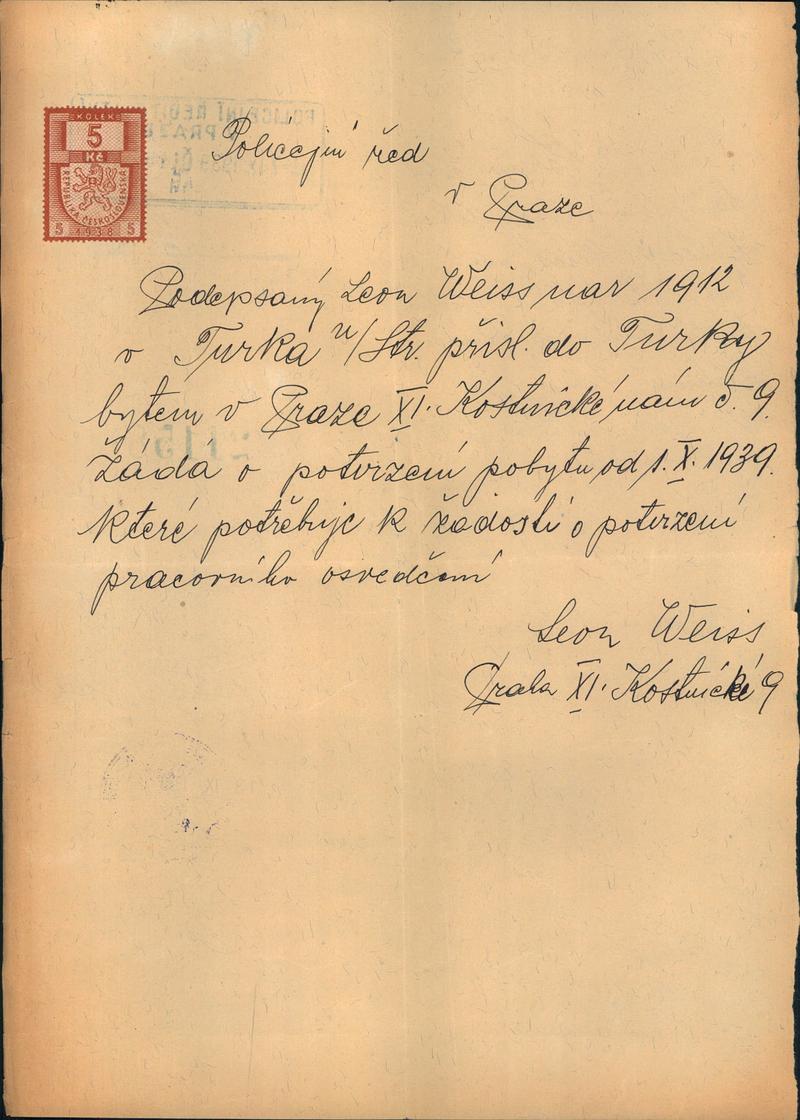 KOLEK
5
Kč
REPUBLIKA ČESKOSLOVENSKÁ
5 1938 5
Policejní řed
v Praze
Podepsaný Leon Weiss nar 1912
v Turka n/Str. přísl. do Turky
bytem v Praze XI. Kostnické nám č. 9
žádá o potvrzení pobytu od 1. X. 1939.
které potřebuje k žádosti o potvrzení
pracovního osvedčení
Leon Weiss
Praha XI. Kostnické 9